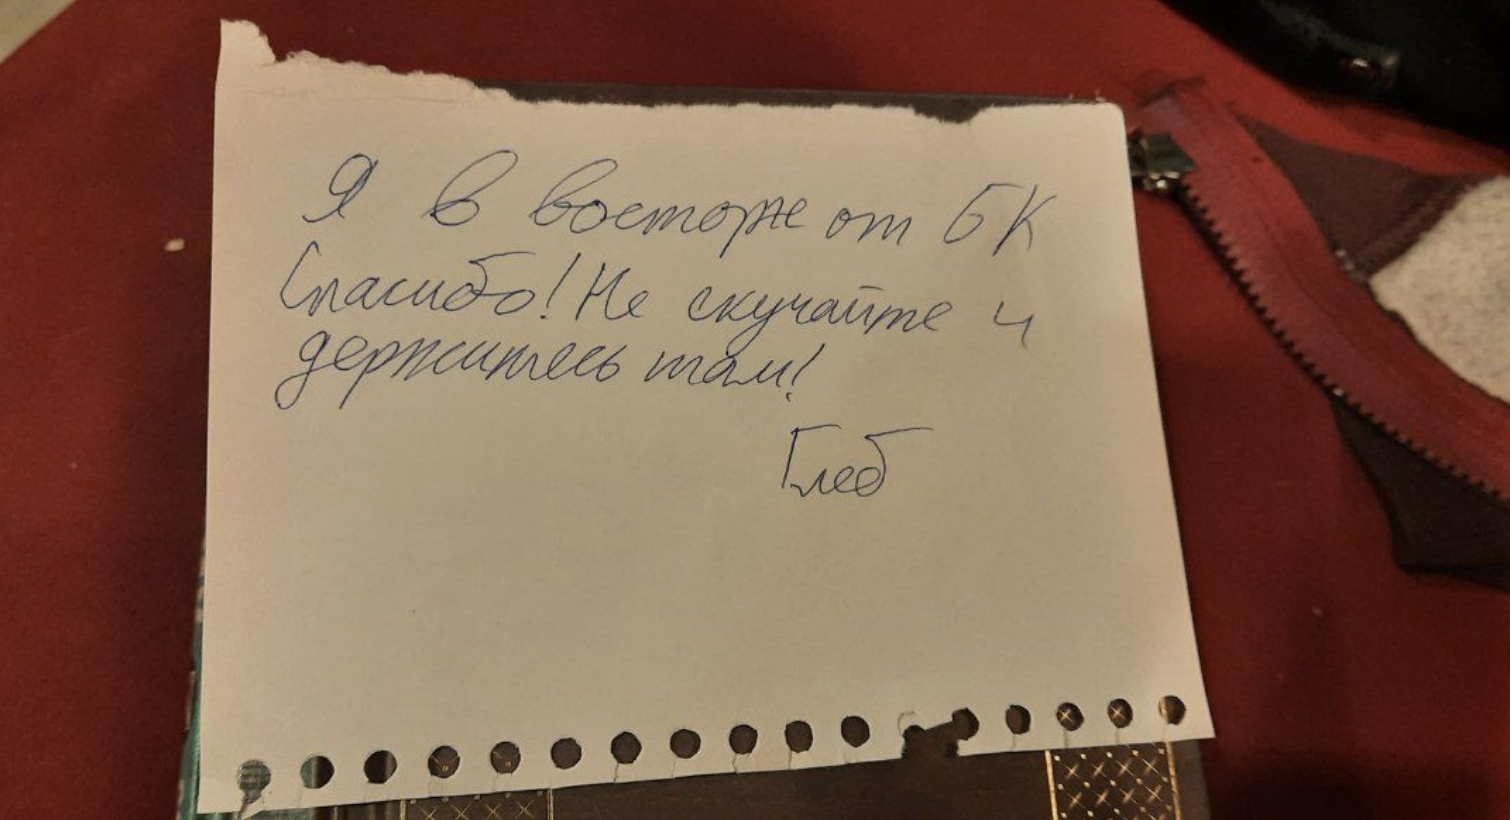 Я в восторже от БК
Спасибо! Не скучайте и
держитесь там!
Глеб